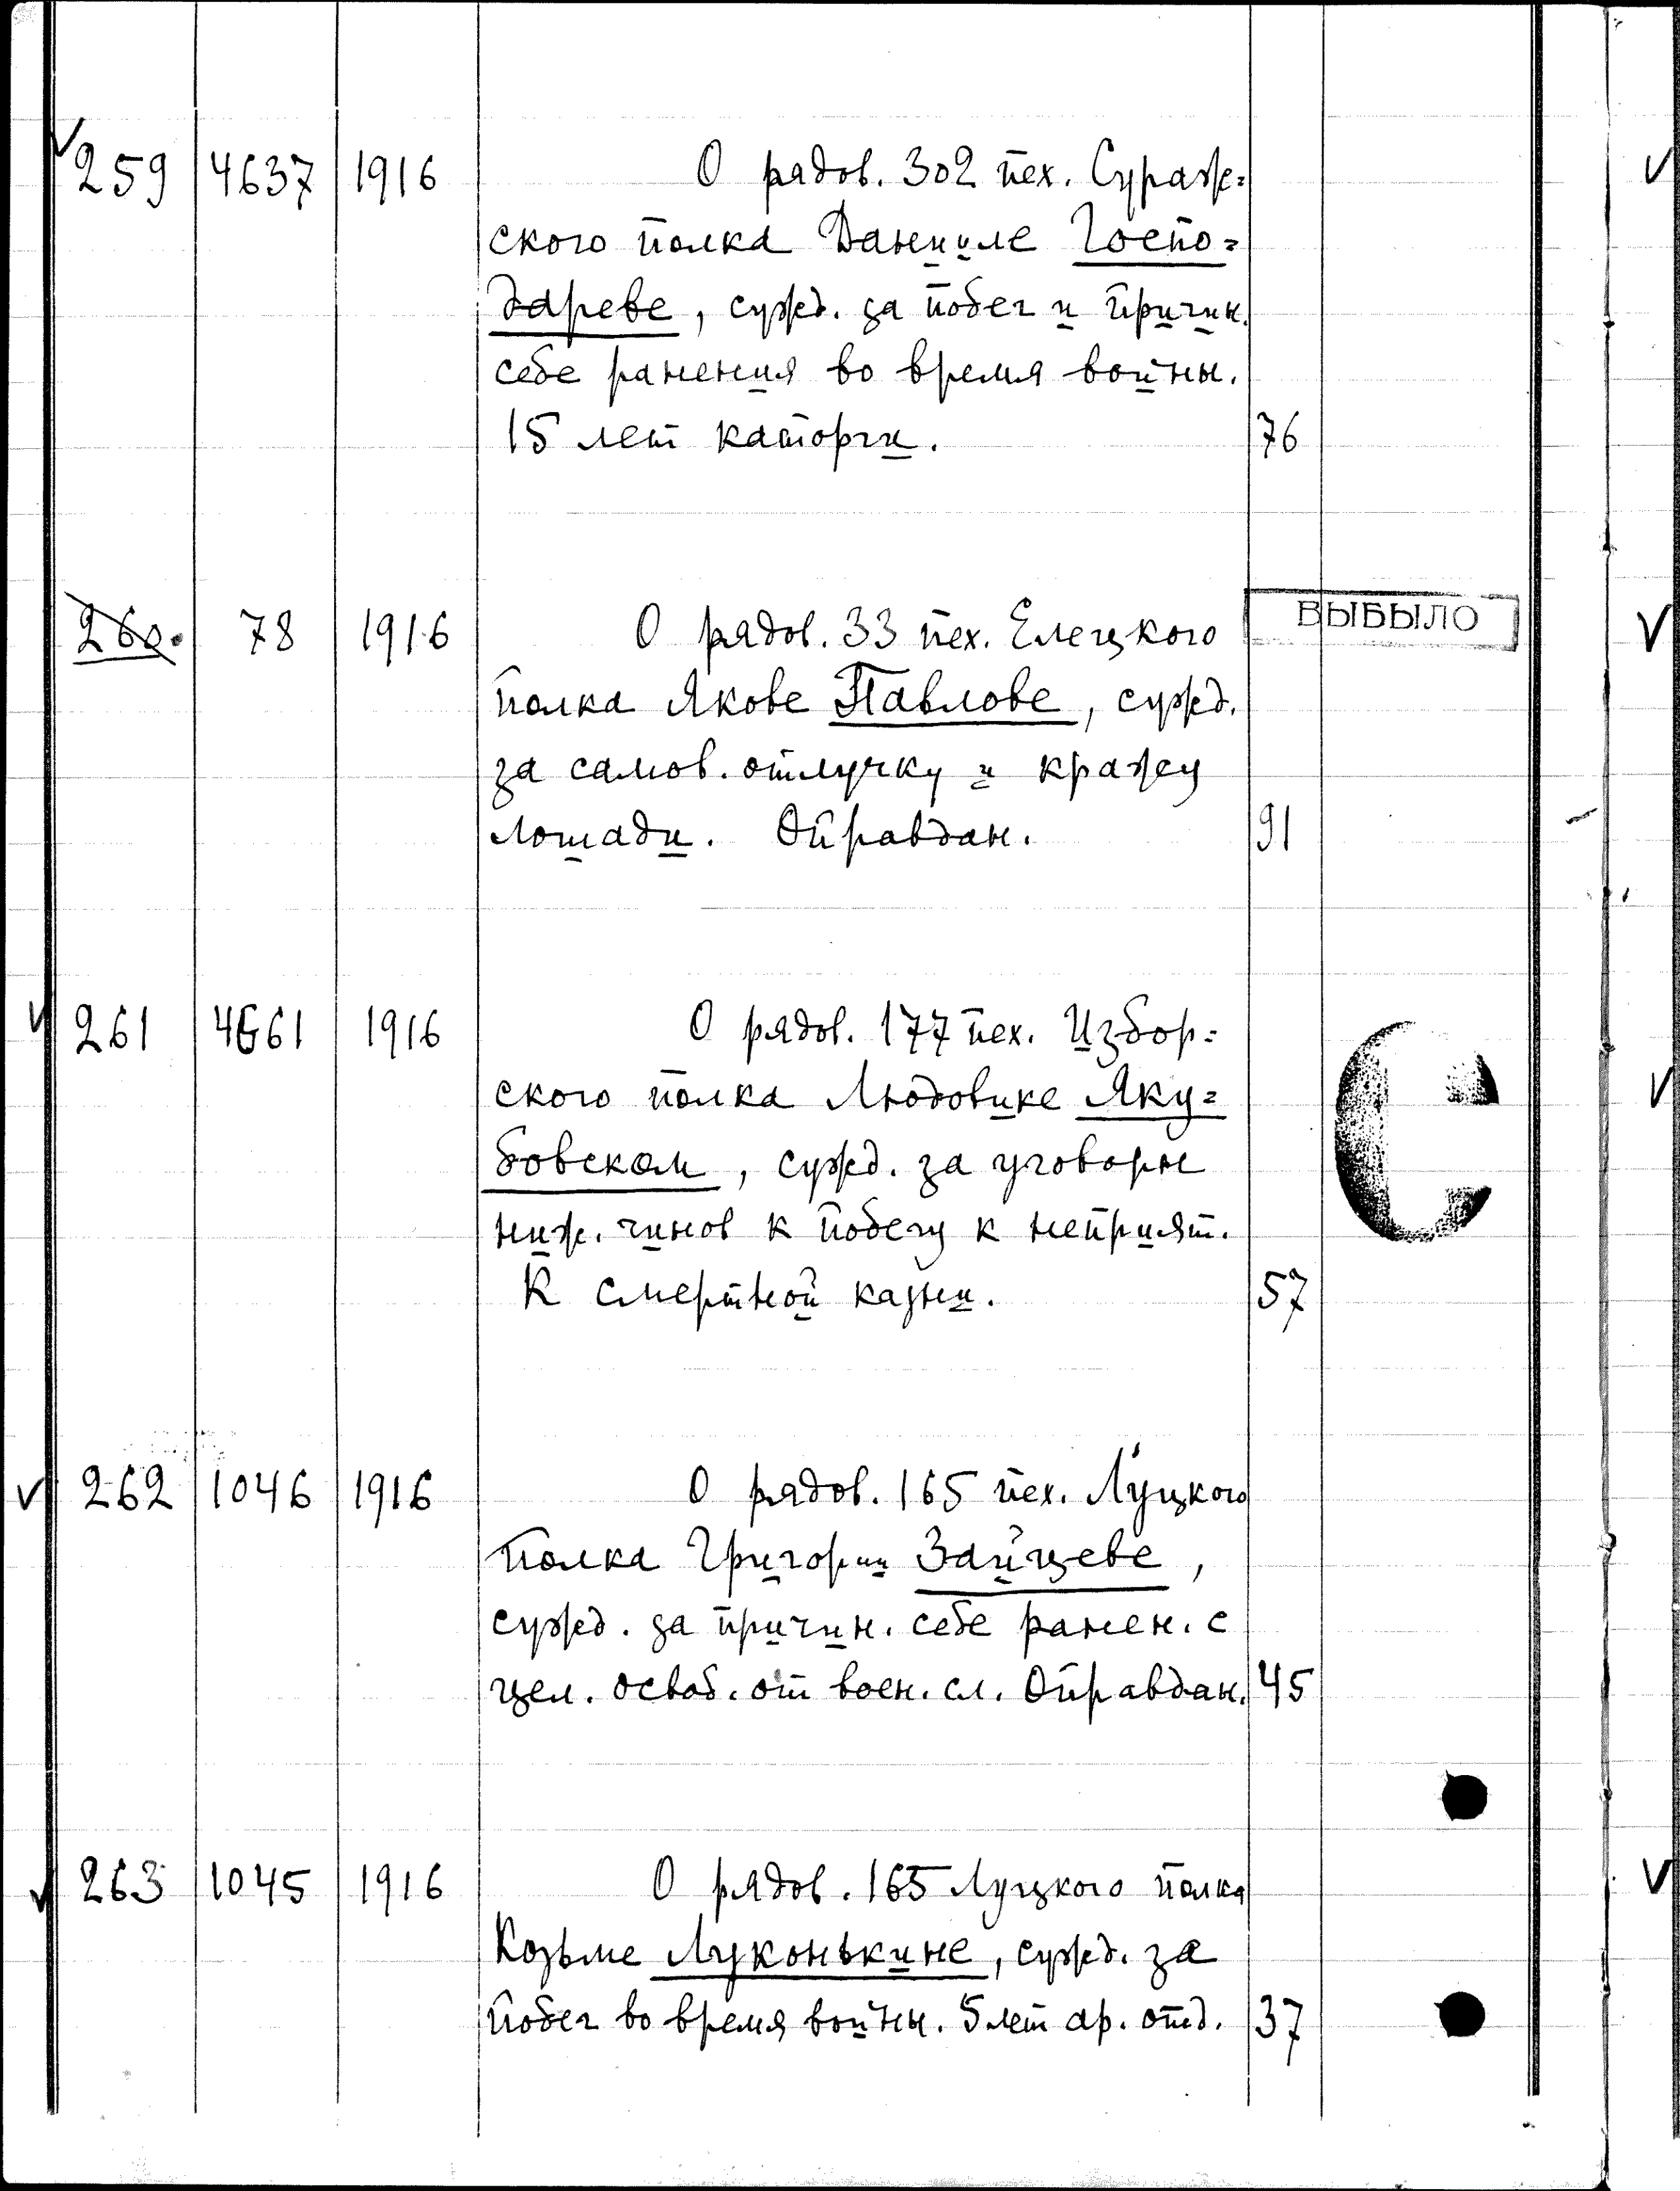 259 4637 1916 О рядов. 302 пех. Сураж=
ского полка Данииле Госпо=
дареве, сужд. за побег и причин.
себе ранения во время войны.
15 лет каторги. 76
260. 78 1916 О рядов. 33 пех. Елецкого ВЫБЫЛО
полка Якове Павлове, сужд.
за самов. отлучку и кражу
лошади. Оправдан. 91
261 4661 1916 О рядов. 177 пех. Избор=
ского полка Людовике Яку=
бовском, сужд. за уговоры
ниж. чинов к побегу к неприят.
К смертной казни. 57
262 1046 1916 О рядов. 165 пех. Луцкого
полка Григории Зайцеве,
сужд. за причин. себе ранен. с
цел. освоб. от воен. сл. Оправдан. 45
263 1045 1916 О рядов. 165 Луцкого полка
Козьме Луконькине, сужд. за
побег во время войны. 5 лет ар. отд. 37